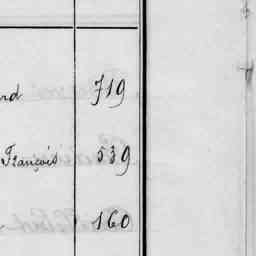 719
François 539
160